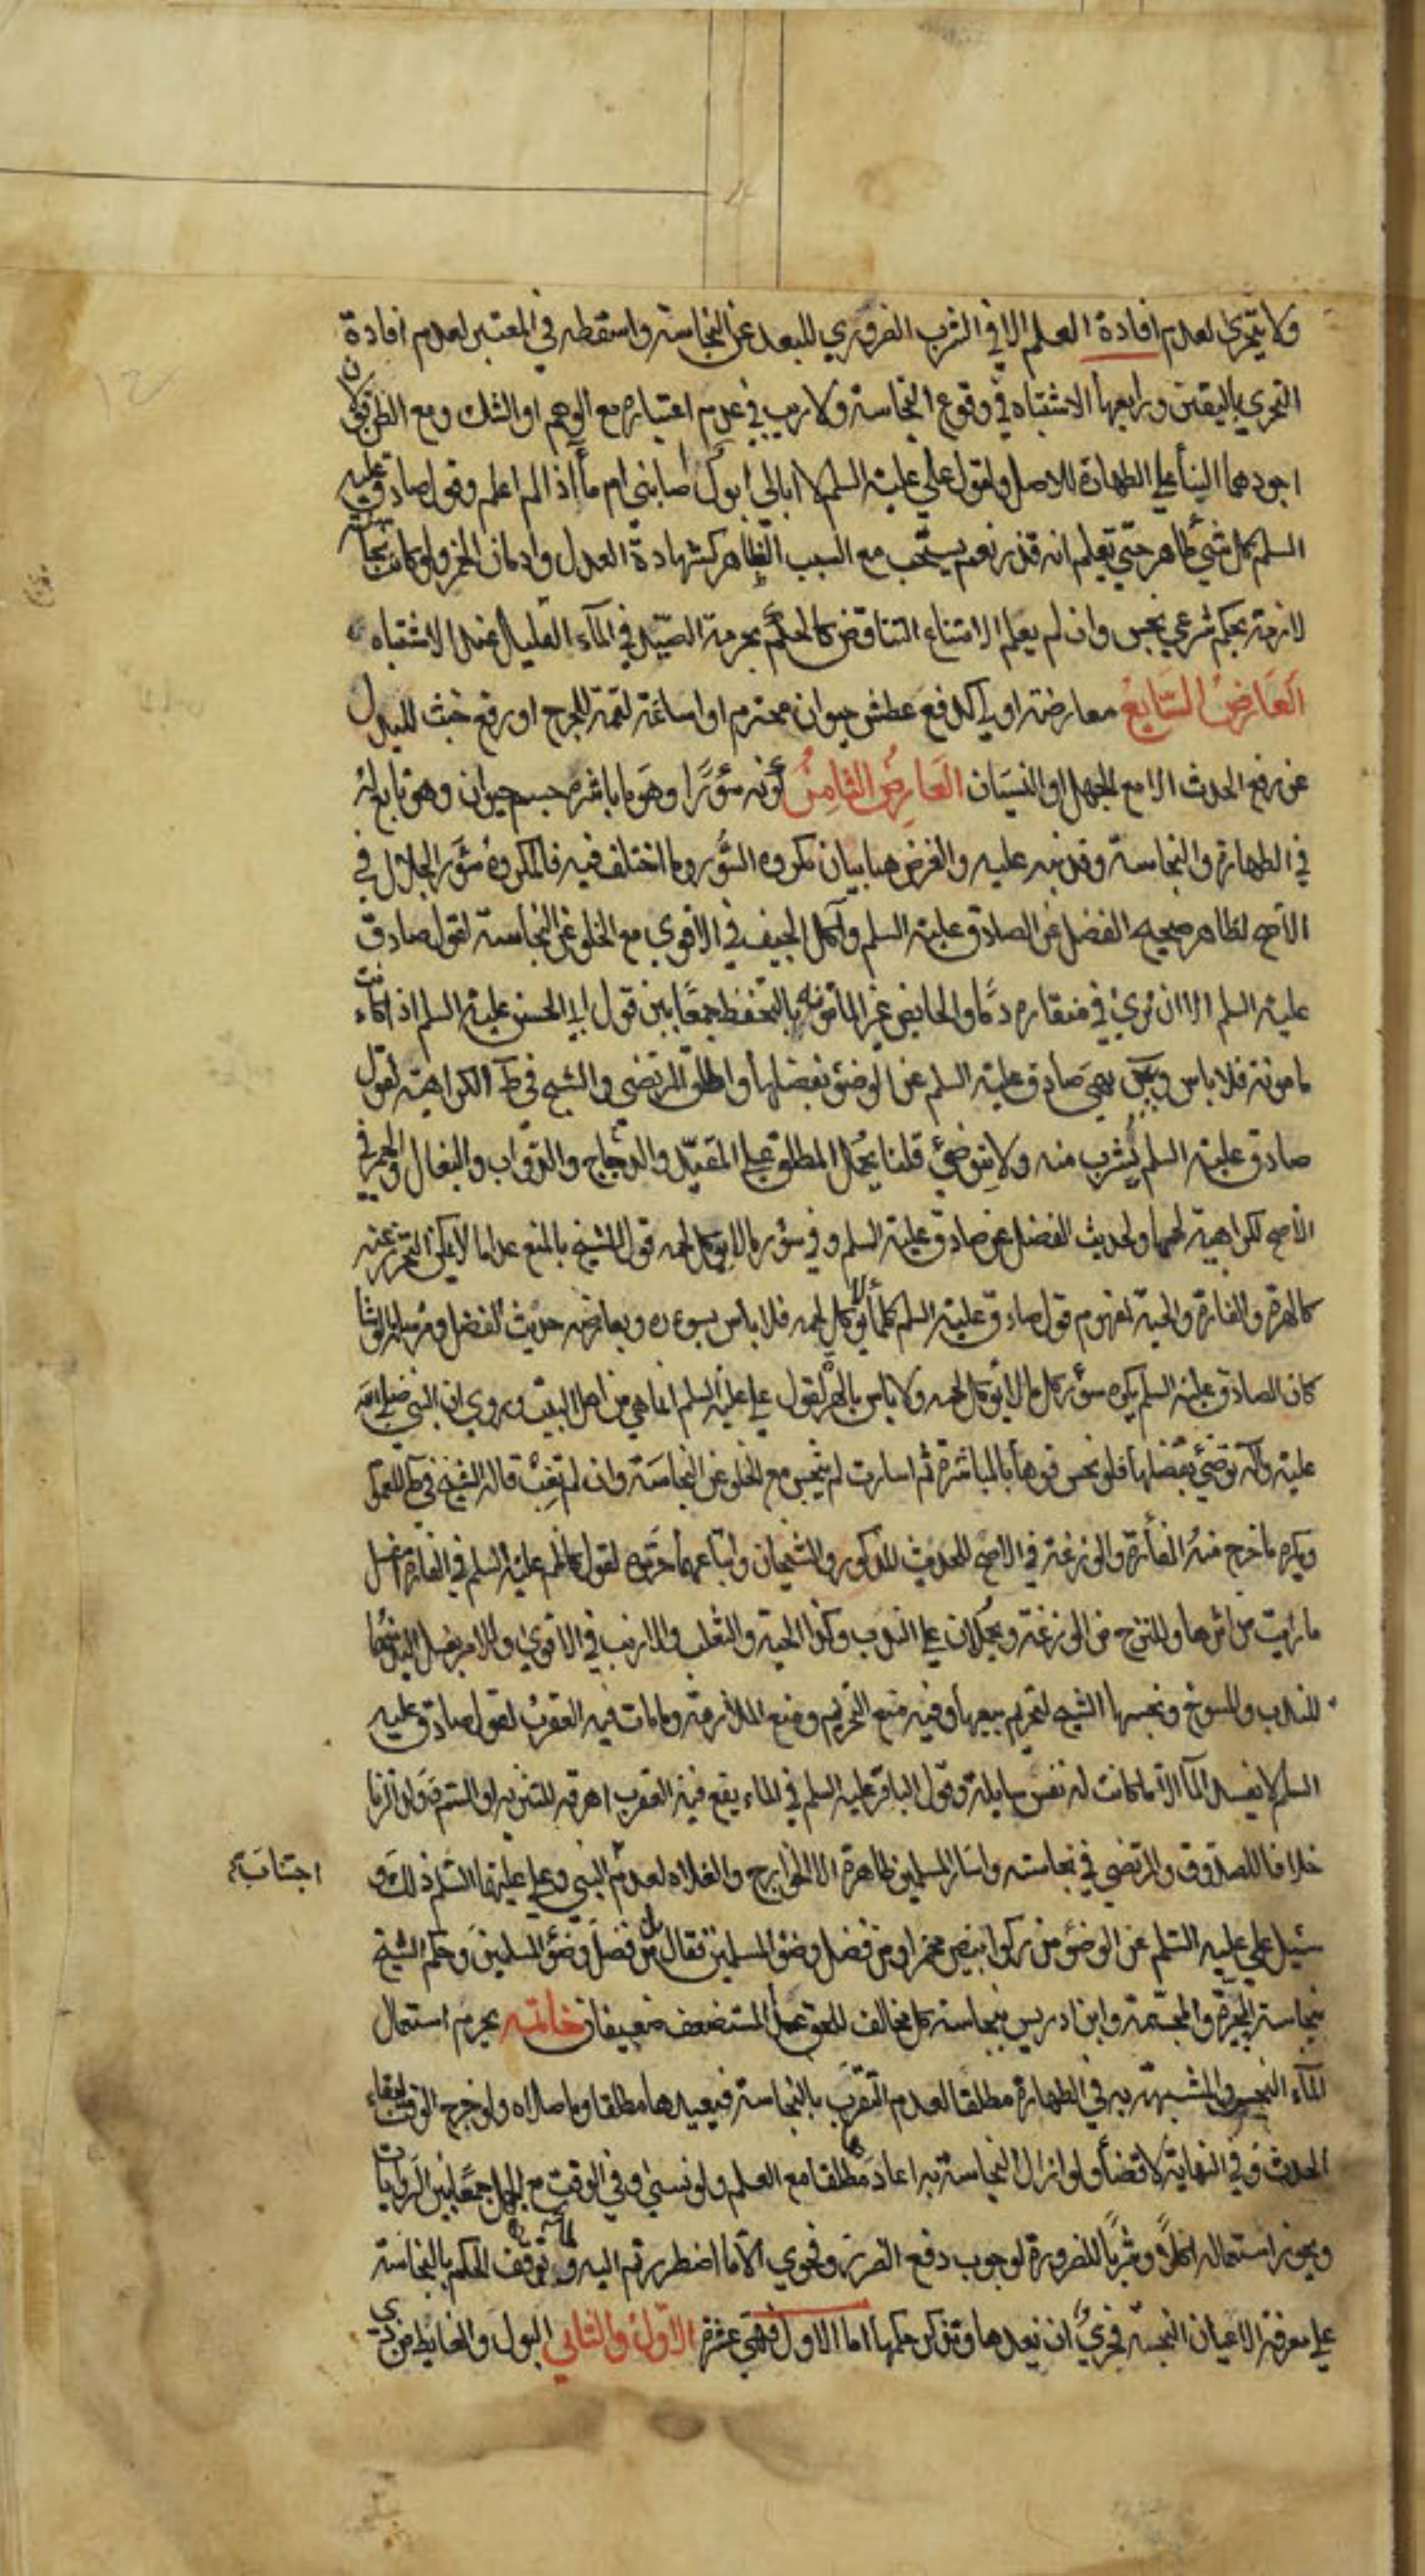 ولا يتحرى لعدم افادة العلم الا في الشرب الضروري للبعد عن النجاسة واسقطه في المعتبر لعدم افادة
التحري باليقين ورابعها الاشتباه في وقوع النجاسة ولا ريب في عدم اعتباره مع الوهم او الشك ومع الظن قولان
اجودهما البنأ على الطهارة للاصل ولقول علي عليه السلم لا ابالي ابول اصابني ام مأ اذا لم اعلم وقول صادق عليه
السلم كل شي طاهر حتى تعلم انه قذر نعم يستحب مع السبب الظاهر كشهادة العدل وادمان الخمر ولو كانت نجاسة
لازمة بحكم شرعي نجس وان لم يعلم لامتناع التناقض كالحكم بحرمة الصيد في المآء القليل عند الاشتباه
العارض السابع معارضة اولى كدفع عطش حيوان محترم او اساغة لقمة للجرح او رفع خبث للبدل
عن رفع الحدث الا مع الجهل او النسيان العارض الثامن كونه سؤرا وهو ما باشره جسم حيوان وهو تابع له
في الطهارة والنجاسة وقد نبه عليه والغرض هنا بيان مكروه السؤر وما اختلف فيه فالمكروه سؤر الجلال في
الاصح لظاهر صحيح الفضل عن الصادق عليه السلم وآكل الجيف في الاقوى مع الخلو عن النجاسة لقول صادق
عليه السلم الا ان ترى في منقاره دما والحايض غير المأمونة بالتحفظ جمعا بين قول ابي الحسن عليه السلم اذا كانت
مامونة فلا باس وبين نهى صادق عليه السلم عن الوضؤ بفضلها واطلق المرتضى والشيخ في ط الكراهية لقول
صادق عليه السلم يشرب منه ولا يتوضئ قلنا يحمل المطلق على المقيد والدجاج والدواب والبغال والحمر في
الاصح لكراهية لحمها ولحديث الفضل عن صادق عليه السلم وفي سؤر مالا يوكل لحمه قول للشيخ بالمنع عدا ما لا يمكن التحرز عنه
كالهرة والفارة والحية لمفهوم قول صادق عليه السلم كلما يوكل لحمه فلا باس بسوره ويعارضه حديث الفضل ومرسل الوشا
كان الصادق عليه السلم يكره سؤر كل ما لا يؤكل لحمه ولا باس بالهر لقول علي عليه السلم انما هي من اهل البيت وروي ان النبي صلى الله
عليه وآله توضئ بفضلها فلو نجس فوها بالمباشرة ثم اسارت لم ينجس مع الخلو عن النجاسة وان لم تغب قاله الشيخ في ط للعموم
ويكره ما خرج منه الفأرة والوزغة في الاصح للحديث المذكور والشيخان واتباعهما حرموه لقول كاظم عليه السلم في الفارة اغسل
ما رايت من اثرها والنزح من الوزغة ويحملان على الندب وكذا الحية والثعلب والارنب في الاقوى والامر بغسل اليد منهما
للندب والمسوخ ونجسها الشيخ لتحريم بيعها وفيه منع التحريم ومنع الملازمة وما مات فيه العقرب لقول صادق عليه
السلم لا يفسد المآ الا ما كانت له نفس سايلة وقول الباقر عليه السلم في الماء يقع فيه العقرب اهرقه للتنزيه او السم وولد الزنا
خلافا للصدوق والمرتضى في نجاسته واسار المسلمين طاهرة الا الخوارج والغلاه لعدم اجتناب النبي وعلي عليهما السلم ذلك و
سئل علي عليه السلم عن الوضؤ من ركوا ابيض مخمر او من فضل وضؤ المسلمين فقال بل من فضل وضؤ المسلمين وحكم الشيخ
بنجاسة المجبرة والمجسمة وابن ادريس بنجاسة كل مخالف للحق عدا المستضعف ضعيفان خاتمه يحرم استعمال
المآء النجس والمشتبه به في الطهارة مطلقا لعدم التقرب بالنجاسة فيعيدها مطلقا وما صلاه ولو خرج الوقت لبقاء
الحدث وفي النهاية لا قضأ ولو ازال النجاسة به اعاد مطلقا مع العلم ولو نسي وفي الوقت مع الجهل جمعا بين الروايات
ويجوز استعماله اكلا وشربا للضرورة لوجوب دفع الضرر وفحوى الا ما اضطررتم اليه ولما توقف الحكم بالنجاسة
على معرفة الاعيان النجسة فحري ان نعدها ونذكر حكمها اما الاول فهي عشرة الاول والثاني البول والغايط من ذي